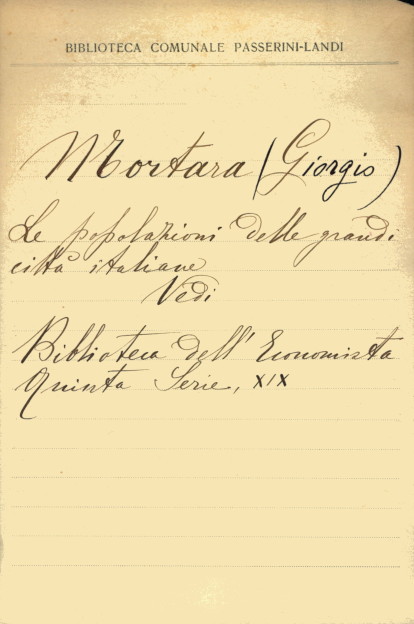 BIBLIOTECA COMUNALE PASSERINI-LANDI
Mortara (Giorgio)
Le popolazioni delle grandi
città italiane
Vedi
Biblioteca dell' Economista
Quinta Serie, XIX